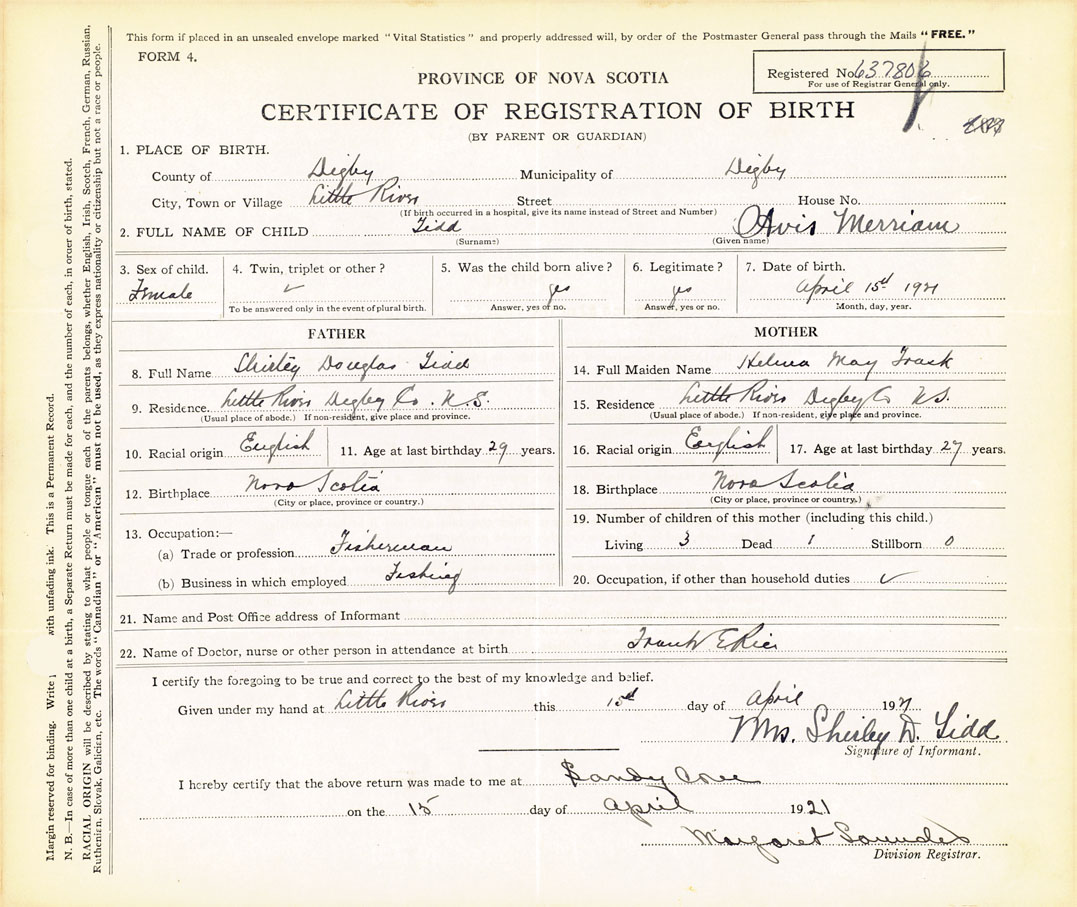 This form if placed in an unsealed envelope marked "Vital Statistics" and properly addressed will, by order of the Postmaster General pass through the Mails "FREE."
FORM 4.
Registered No. 637806
For use of Registrar General only.
PROVINCE OF NOVA SCOTIA
CERTIFICATE OF REGISTRATION OF BIRTH
(BY PARENT OR GUARDIAN)
1. PLACE OF BIRTH.
County of Digby Municipality of Digby
City, Town or Village Little River Street House No.
(If birth occurred in a hospital, give its name instead of Street and Number)
2. FULL NAME OF CHILD Tidd Avis Merriam
(Surname) (Given name)
3. Sex of child. 4. Twin, triplet or other? 5. Was the child born alive? 6. Legitimate? 7. Date of birth.
Female ✓ yes yes April 15d 1921
To be answered only in the event of plural birth. Answer, yes or no. Answer, yes or no. Month, day, year.
FATHER
8. Full Name Shirley Douglas Tidd
9. Residence. Little River Digby Co. N.S.
(Usual place of abode.) If non-resident, give place and province.
10. Racial origin English 11. Age at last birthday 29 years.
12. Birthplace Nova Scotia
(City or place, province or country.)
13. Occupation:—
(a) Trade or profession Fisherman
(b) Business in which employed Fishing
MOTHER
14. Full Maiden Name Helena May Trask
15. Residence Little River Digby Co N.S.
(Usual place of abode.) If non-resident, give place and province.
16. Racial origin English 17. Age at last birthday 27 years.
18. Birthplace Nova Scotia
(City or place, province or country.)
19. Number of children of this mother (including this child.)
Living 3 Dead 1 Stillborn 0
20. Occupation, if other than household duties ✓
21. Name and Post Office address of Informant
22. Name of Doctor, nurse or other person in attendance at birth Frank E Rice
I certify the foregoing to be true and correct to the best of my knowledge and belief.
Given under my hand at Little River this 15d day of April 1921
Mrs. Shirley D. Tidd
Signature of Informant.
I hereby certify that the above return was made to me at Sandy Cove
on the 15 day of April 1921
Margaret Saunders
Division Registrar.
Margin reserved for binding. Write with unfading ink. This is a Permanent Record.
N. B.—In case of more than one child at a birth, a Separate Return must be made for each, and the number of each, in order of birth, stated.
RACIAL ORIGIN will be described by stating to what people or tongue each of the parents belongs, whether English, Irish, Scotch, French, German, Russian,
Ruthenian, Slovak, Galician, etc. The words "Canadian" or "American" must not be used, as they express nationality or citizenship but not a race or people.